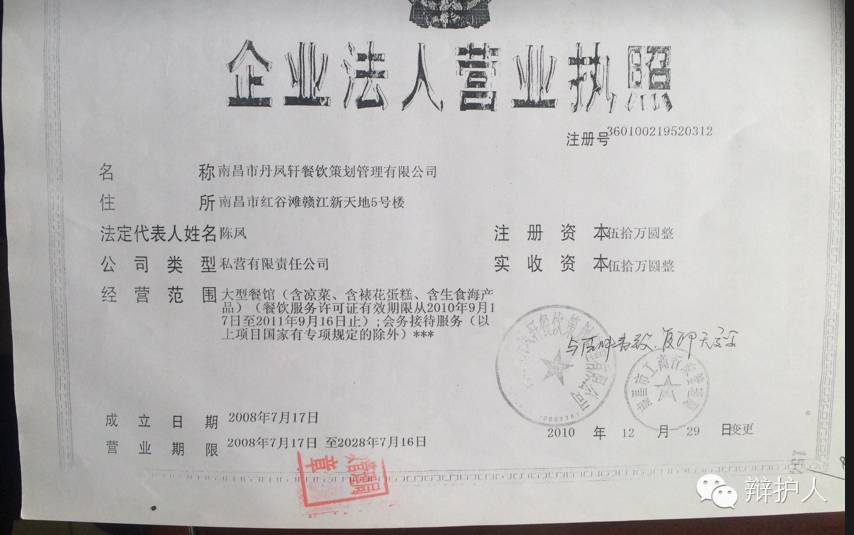 企业法人营业执照
注册号 360100219520312
名称 南昌市丹凤轩餐饮策划管理有限公司
住所 南昌市红谷滩赣江新天地5号楼
法定代表人姓名 陈凤 注册资本 伍拾万圆整
公司类型 私营有限责任公司 实收资本 伍拾万圆整
经营范围 大型餐馆（含凉菜、含裱花蛋糕、含生食海产
品）（餐饮服务许可证有效期限从2010年9月1
7日至2011年9月16日止）;会务接待服务（以
上项目国家有专项规定的除外）***
复印无效
南昌市工商行政管理局
成立日期 2008年7月17日
营业期限 2008年7月17日 至2028年7月16日
2010 年 12 月 29 日变更
辩护人